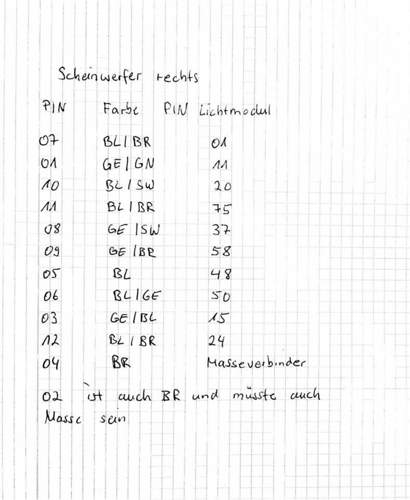 Scheinwerfer rechts
PIN Farbe PIN Lichtmodul
07 BL/BR 01
01 GE/GN 11
10 BL/SW 20
11 BL/BR 75
08 GE/SW 37
09 GE/BR 58
05 BL 48
06 BL/GE 50
03 GE/BL 15
12 BL/BR 24
04 BR Masseverbinder
02 ist auch BR und müsste auch
Masse sein